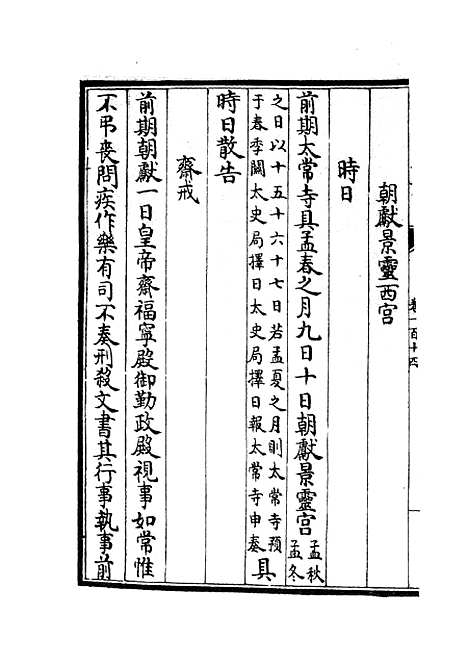 卷一百十四
朝獻景靈西宮
時日
前期太常寺具孟春之月九日十日朝獻景靈宮孟秋孟冬
之日以十五十六十七日若孟夏之月則太常寺預
于春季關太史局擇日太史局擇日報太常寺申奏具
時日散告
齋戒
前期朝獻一日皇帝齋福寧殿御勤政殿視事如常惟
不弔喪問疾作樂有司不奏刑殺文書其行事執事前